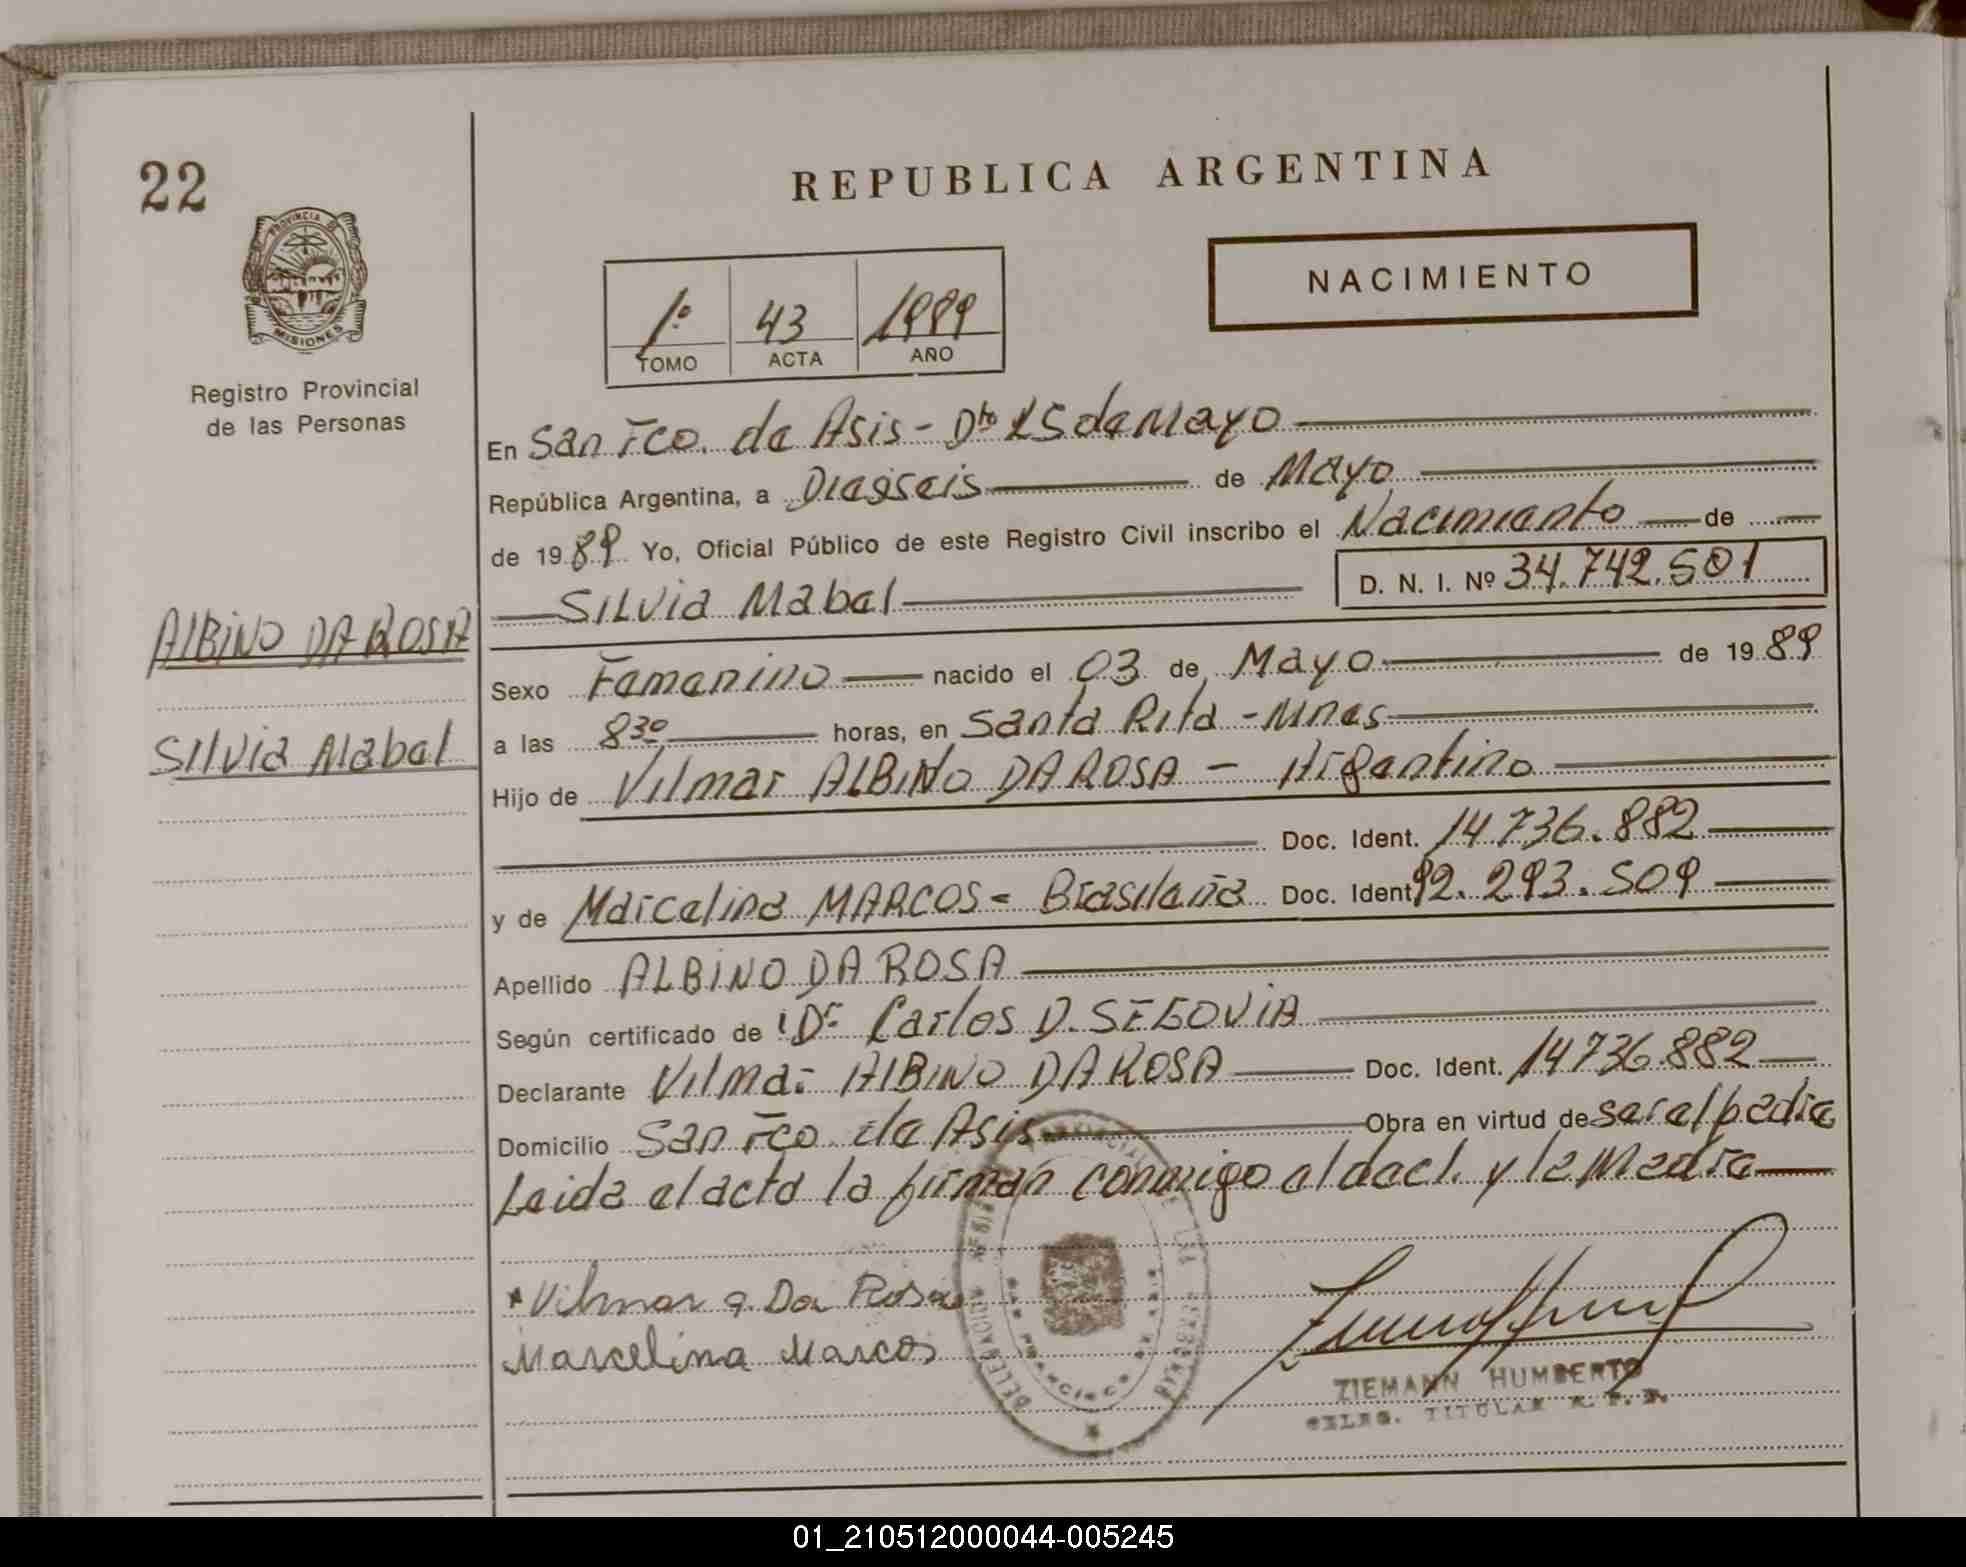 22
REPUBLICA ARGENTINA
NACIMIENTO
PROVINCIA DE
MISIONES
Registro Provincial
de las Personas
1º 43 1989
TOMO ACTA AÑO
En San Fco. de Asis - Dto 25 de Mayo
República Argentina, a Dieciseis de Mayo
de 1989 Yo, Oficial Público de este Registro Civil inscribo el Nacimiento de
Silvia Mabel D. N. I. Nº 34.742.501
ALBINO DA ROSA
Silvia Mabel
Sexo Femenino nacido el 03 de Mayo de 1989
a las 830 horas, en Santa Rita - Mnes
Hijo de Vilmar ALBINO DA ROSA - Argentino
Doc. Ident. 14.736.882
y de Marcelina MARCOS = Brasileña Doc. Ident. 92.293.509
Apellido ALBINO DA ROSA
Según certificado de Dr Carlos D. SEGOVIA
Declarante Vilmar ALBINO DA ROSA Doc. Ident. 14736.882
Domicilio San Fco de Asis Obra en virtud de ser el padre
Leida el acta la firman conmigo el decl. y la Madre
Vilmar a. Da Rosa
Marcelina Marcos
ZIEMANN HUMBERTO
DELEG. TITULAR R. P. P.
SAN FRANCISCO DE ASIS
01_210512000044-005245